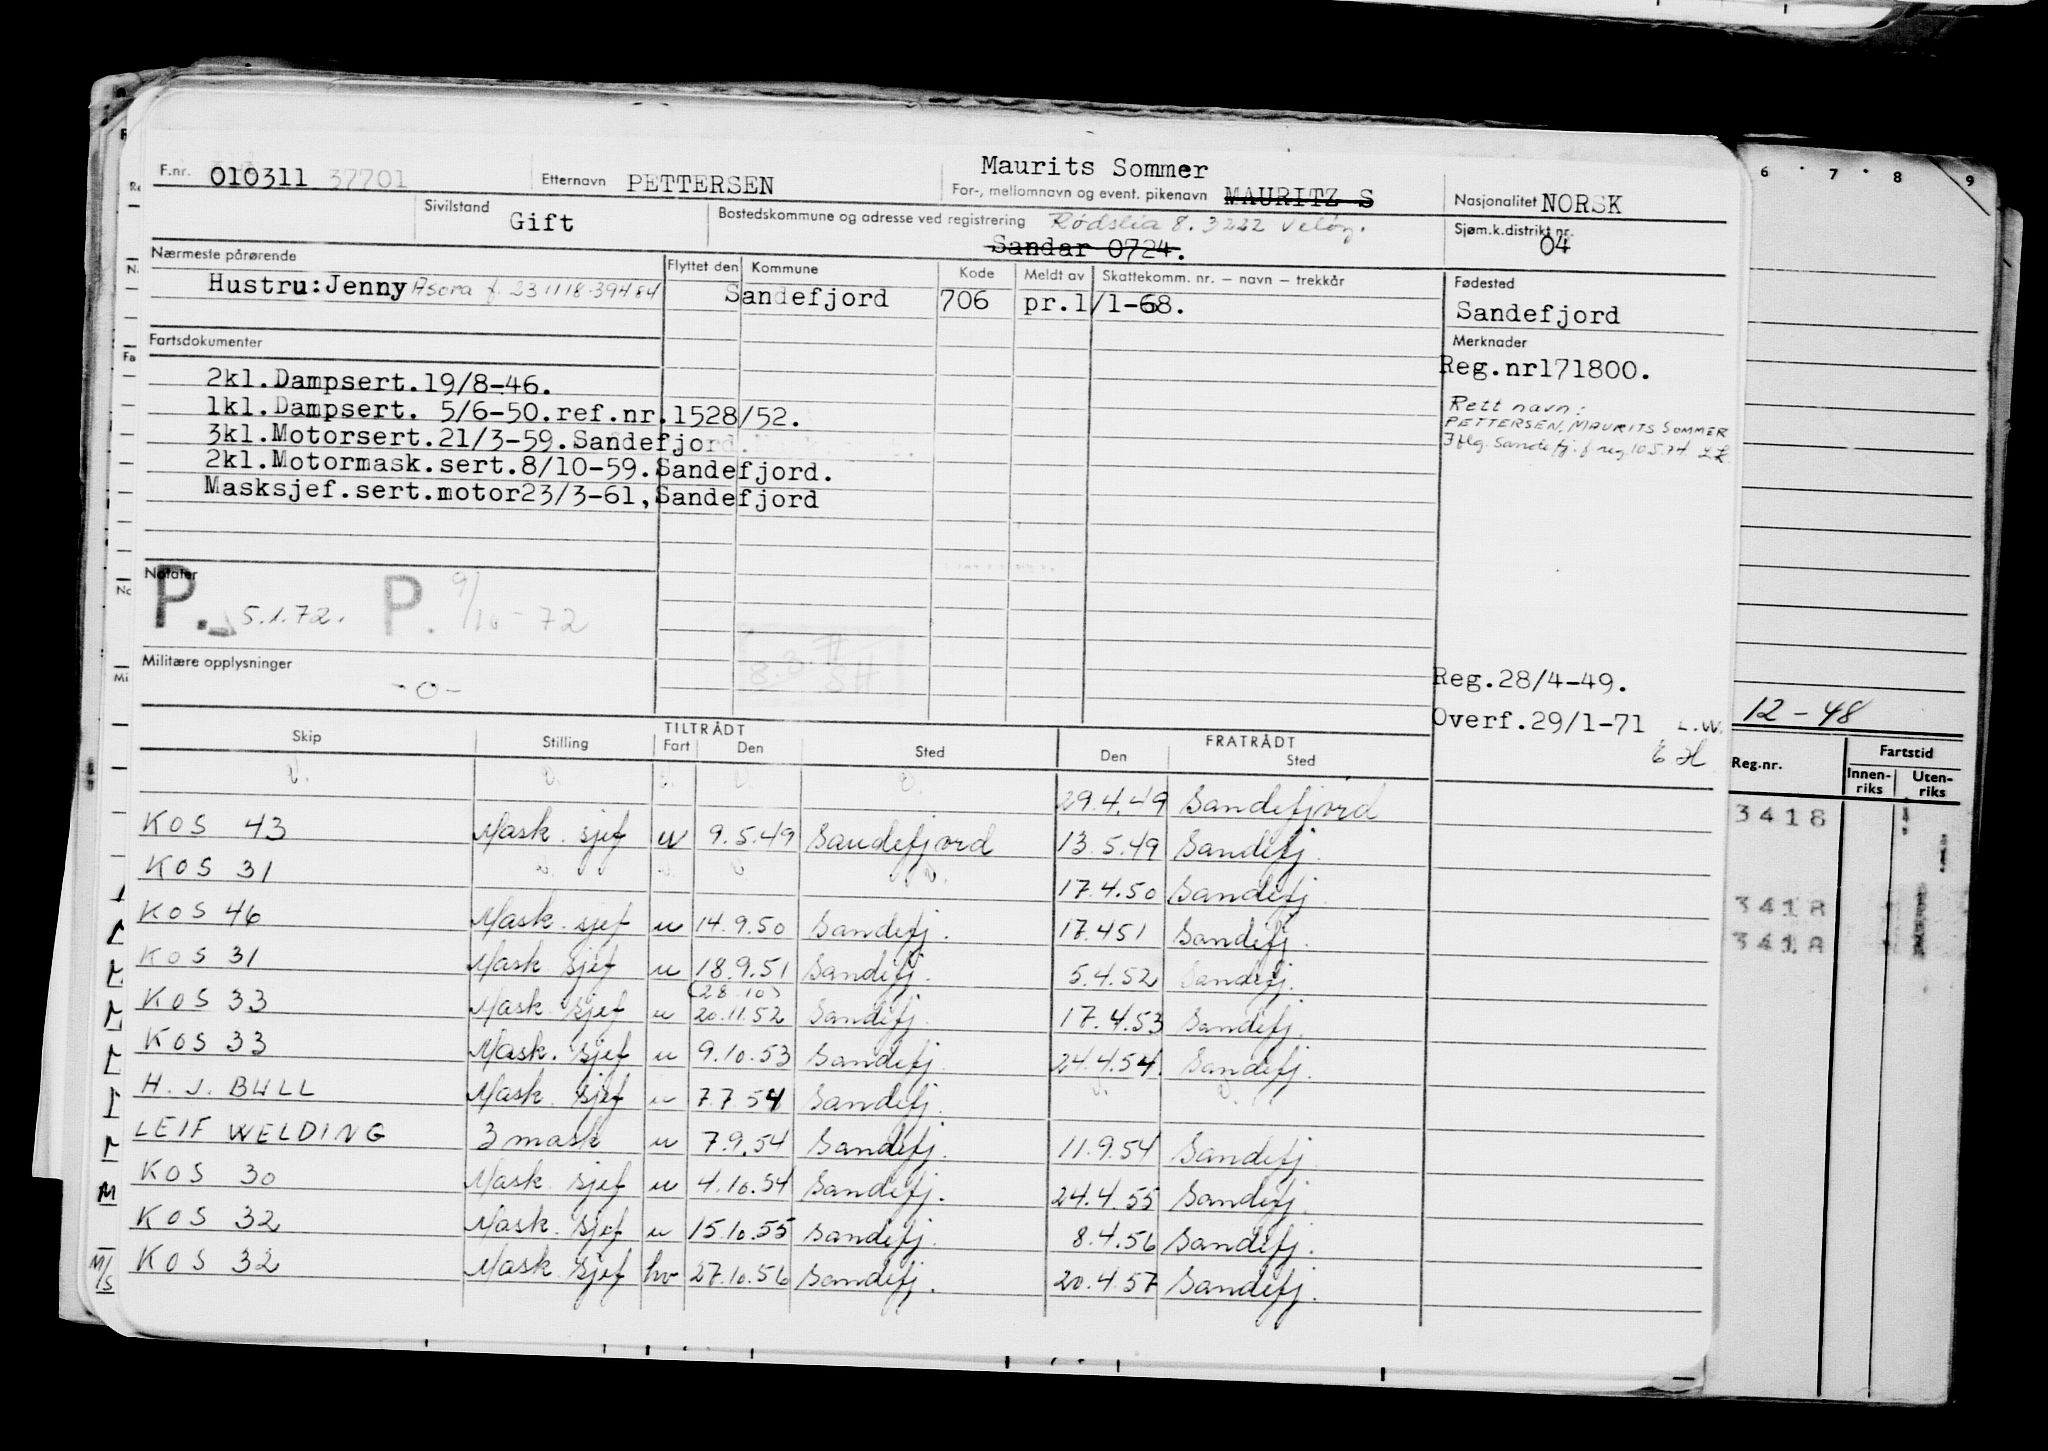 Maurits Sommer
F.nr. 010311 37701 Etternavn PETTERSEN For-, mellomnavn og event. pikenavn MAURITZ S Nasjonalitet NORSK
Sivilstand Gift Bostedskommune og adresse ved registrering Rødslia 8. 3222 Veløy. Sjøm.k.distrikt nr. 04
Sandar 0724.
Nærmeste pårørende Flyttet den Kommune Kode Meldt av Skattekomm. nr. – navn – trekkår Fødested
Hustru:Jenny Asora f. 231118-39484 Sandefjord 706 pr.1/1-68. Sandefjord
Fartsdokumenter Merknader
Reg.nr171800.
2kl.Dampsert.19/8-46.
1kl.Dampsert. 5/6-50.ref.nr.1528/52.
3kl.Motorsert.21/3-59.Sandefjord.
2kl.Motormask.sert.8/10-59.Sandefjord.
Masksjef.sert.motor23/3-61,Sandefjord
Rett navn:
PETTERSEN, MAURITS SOMMER
Iflg. Sandefj. f reg 10574
Notater
P. 5.1.72. P. 9/10-72
Militære opplysninger
-o-
Reg.28/4-49.
Overf.29/1-71 L.W.
E H
12-48
TILTRÅDT FRATRÅDT
Skip Stilling Fart Den Sted Den Sted
Reg.nr. Fartstid
Innen-riks Uten-riks
29.4.49 Sandefjord
KOS 43 Mask. sjef u 9.5.49 Sandefjord 13.5.49 Sandefj.
KOS 31 17.4.50 Sandefj.
KOS 46 Mask. sjef u 14.9.50 Sandefj. 17.451 Sandefj.
KOS 31 Mask. sjef u 18.9.51 Sandefj. 5.4.52 Sandefj.
(28.10)
KOS 33 Mask. sjef u 20.11.52 Sandefj. 17.4.53 Sandefj.
KOS 33 Mask. sjef u 9.10.53 Sandefj. 24.4.54. Sandefj.
H. J. BULL Mask. sjef u 7.7.54 Sandefj.
LEIF WELDING 3 mask u 7.9.54 Sandefj. 11.9.54 Sandefj.
KOS 30 Mask. sjef u 4.10.54 Sandefj. 24.4.55 Sandefj.
KOS 32 Mask. sjef u 15.10.55 Sandefj. 8.4.56 Sandefj.
KOS 32 Mask. sjef hv 27.10.56 Sandefj. 20.4.57 Sandefj.
3418
3418
3418
6 7 8 9
M
M/S